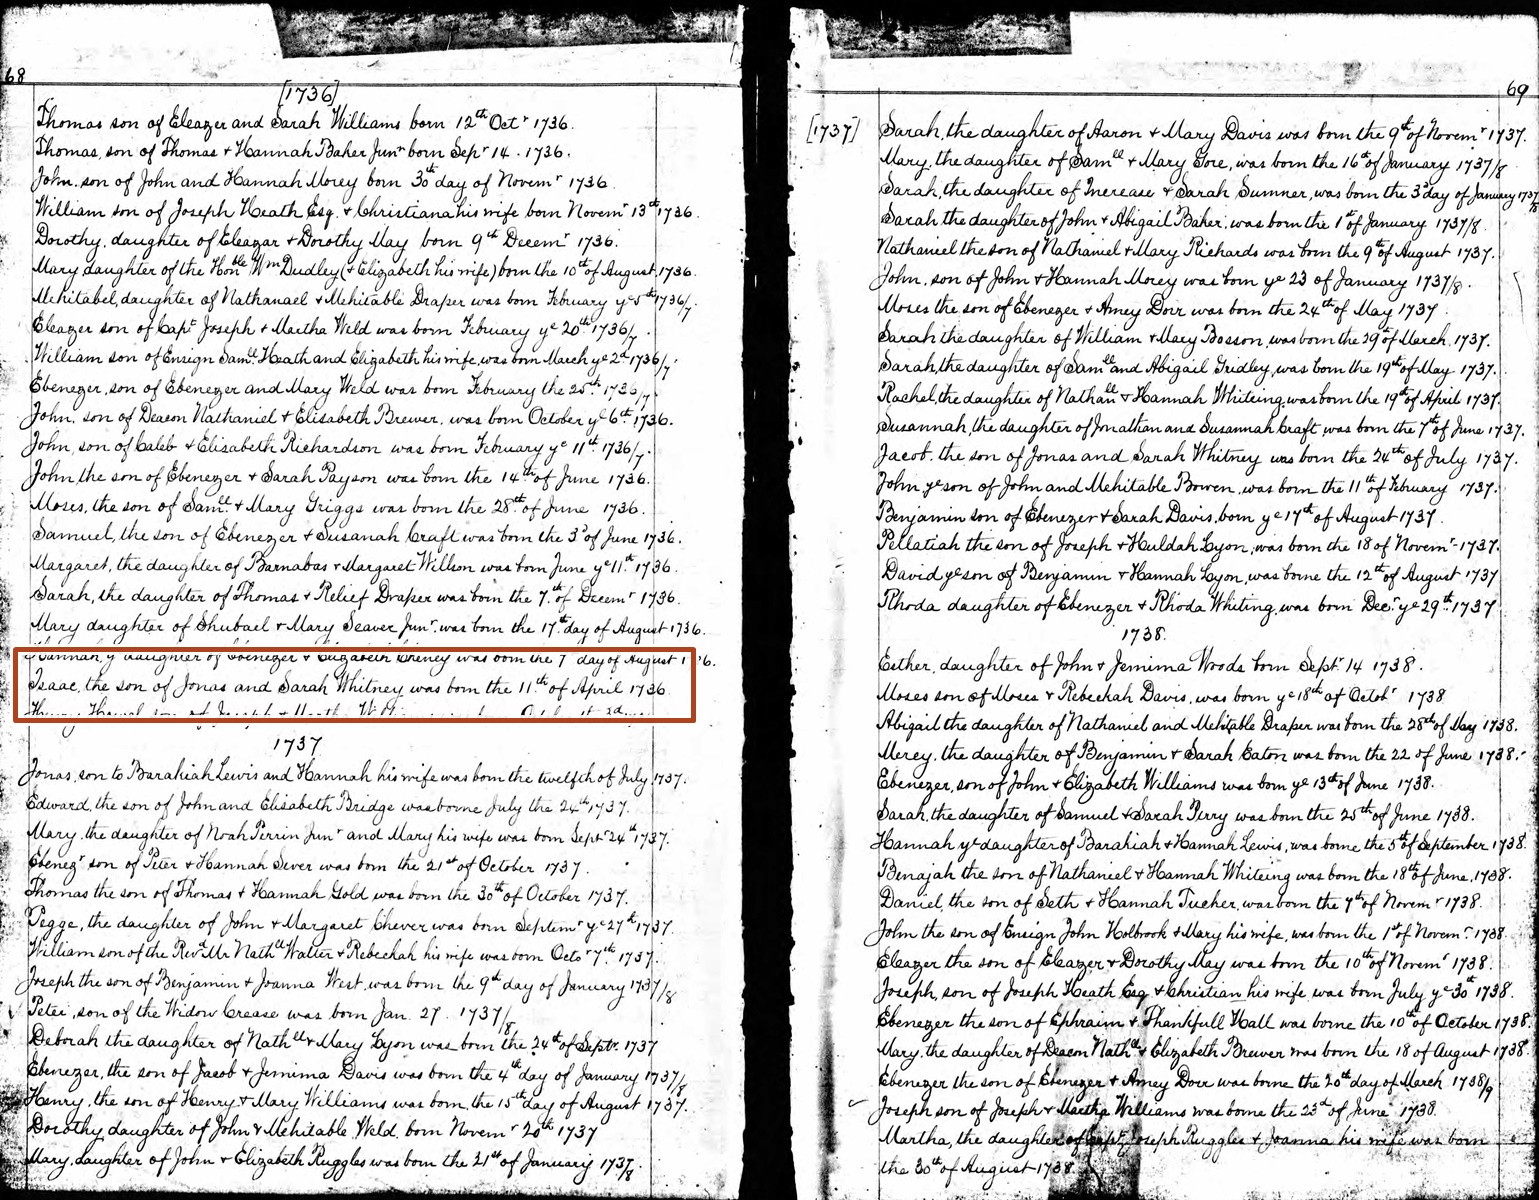 68
[1736]
Thomas son of Eleazer and Sarah Williams born 12th Octr 1736.
Thomas, son of Thomas + Hannah Baker Junr born Sepr 14. 1736.
John, son of John and Hannah Morey born 30th day of Novemr 1736.
William son of Joseph Heath Esq. + Christiana his wife born Novemr 13th 1736.
Dorothy, daughter of Eleazar + Dorothy May born 9th Decemr 1736.
Mary daughter of the Honble Wm Dudley (+ Elizabeth his wife) born the 10th of August, 1736.
Mehitabel, daughter of Nathanael + Mehitable Draper was born February ye 5th 1736/7.
Eleazer son of Capt Joseph + Martha Weld was born February ye 20th 1736/7.
William son of Ensign Samll Heath and Elizabeth his wife, was born March ye 2d 1736/7.
Ebenezer, son of Ebenezer and Mary Weld was born February the 25th 1736/7.
John, son of Deacon Nathaniel + Elisabeth Brewer, was born October ye 6th 1736.
John, son of Caleb + Elisabeth Richardson was born February ye 11th 1736/7.
John, the son of Ebenezer + Sarah Payson was born the 14th of June 1736.
Moses, the son of Samll + Mary Griggs was born the 28th of June 1736.
Samuel, the son of Ebenezer + Susanah Craft was born the 3d of June 1736.
Margaret, the daughter of Barnabas + Margaret Willson was born June ye 11th 1736.
Sarah, the daughter of Thomas + Relief Draper was born the 7th of Decemr 1736.
Mary daughter of Shubael + Mary Seaver Junr. was born the 17th day of August 1736.
Hannah, ye daughter of Ebenezer + Elizabeth Cheney was born the 7 day of August 1736.
Isaac, the son of Jonas and Sarah Whitney was born the 11th of April 1736.
1737
Jonas, son to Barahiah Lewis and Hannah his wife was born the twelfth of July, 1737.
Edward, the son of John and Elisabeth Bridge was borne July the 24th 1737.
Mary, the daughter of Noah Perrin Junr and Mary his wife was born Septr 24th 1737.
Ebenezr son of Peter + Hannah Sever was born the 21st of October 1737.
Thomas the son of Thomas + Hannah Gold was born the 30th of October 1737.
Pegge, the daughter of John + Margaret Chever was born Septemr ye 27th 1737.
William son of the Revd Mr Nathll Walter + Rebeckah his wife was born Octor 7th 1737.
Joseph the son of Benjamin + Joanna West, was born the 9th day of January 1737/8
Peter, son of the Widow Crease was born Jan. 27. 1737/8.
Deborah the daughter of Nathll + Mary Lyon was born the 24th of Septr. 1737
Ebenezer, the son of Jacob + Jemima Davis was born the 4th day of January 1737/8
Henry, the son of Henry + Mary Williams was born, the 15th day of August 1737.
Dorothy daughter of John + Mehitable Weld, born Novemr 20th 1737
Mary, daughter of John + Elizabeth Ruggles was born the 21st of January 1737/8
69
[1737]
Sarah, the daughter of Aaron + Mary Davis was born the 9th of Novemr 1737.
Mary, the daughter of Samll + Mary Gore, was born the 16th of January 1737/8
Sarah, the daughter of Increase + Sarah Sumner, was born the 3d day of January 1737/8
Sarah the daughter of John + Abigail Baker, was born the 1st of January 1737/8.
Nathaniel the son of Nathaniel + Mary Richards was born the 9th of August 1737.
John, son of John + Hannah Morey was born ye 23 of January 1737/8.
Moses the son of Ebenezer + Amey Dorr was born the 24th of May 1737
Sarah the daughter of William + Mary Bosson, was born the 29th of March, 1737.
Sarah, the daughter of Samll and Abigail Gridley, was born the 19th of May 1737.
Rachel, the daughter of Nathanll + Hannah Whiteing, was born the 19th of April 1737.
Susannah, the daughter of Jonathan and Susannah Craft was born the 7th of June 1737.
Jacob. the son of Jonas and Sarah Whitney was born the 24th of July 1737.
John ye son of John and Mehitable Bowen, was born the 11th of February 1737.
Benjamin son of Ebenezer + Sarah Davis, born ye 17th of August 1737.
Pellatiah the son of Joseph + Huldah Lyon, was born the 18 of Novemr 1737.
David ye son of Benjamin + Hannah Lyon, was borne the 12th of August 1737
Rhoda daughter of Ebenezer + Rhoda Whiting, was born Decr ye 29th 1737
1738.
Esther, daughter of John + Jemima Woods born Septr 14 1738.
Moses son of Moses + Rebeckah Davis, was born ye 18th of Octobr 1738
Abigail the daughter of Nathaniel and Mehitable Draper was born the 28th of May 1738.
Mercy, the daughter of Benjamin + Sarah Eaton was born the 22 of June 1738.
Ebenezer, son of John + Elizabeth Williams was born ye 13th of June 1738.
Sarah, the daughter of Samuel + Sarah Perry was born the 25th of June 1738.
Hannah ye daughter of Barahiah + Hannah Lewis, was borne the 5th of September 1738.
Benajah the son of Nathaniel + Hannah Whiteing was born the 18th of June, 1738.
Daniel, the son of Seth + Hannah Tucker, was born the 7th of Novemr 1738.
John the son of Ensign John Holbrook + Mary his wife, was born the 1st of Novemr. 1738.
Eleazer the son of Eleazer + Dorothy May was born the 10th of Novemr 1738.
Joseph, son of Joseph Heath Esq + Christian his wife was born July ye 30th 1738.
Ebenezer the son of Ephraim + Thankfull Hall was borne the 10th of October 1738.
Mary, the daughter of Deacon Nathll + Elizabeth Brewer was born the 18 of August 1738.
Ebenezer the son of Ebenezer + Amey Dorr was borne the 20th day of March 1738/9
Joseph son of Joseph + Martha Williams was borne the 23d of June 1738.
Martha, the daughter of Capt Joseph Ruggles + Joanna his wife was born
the 30th of August 1738